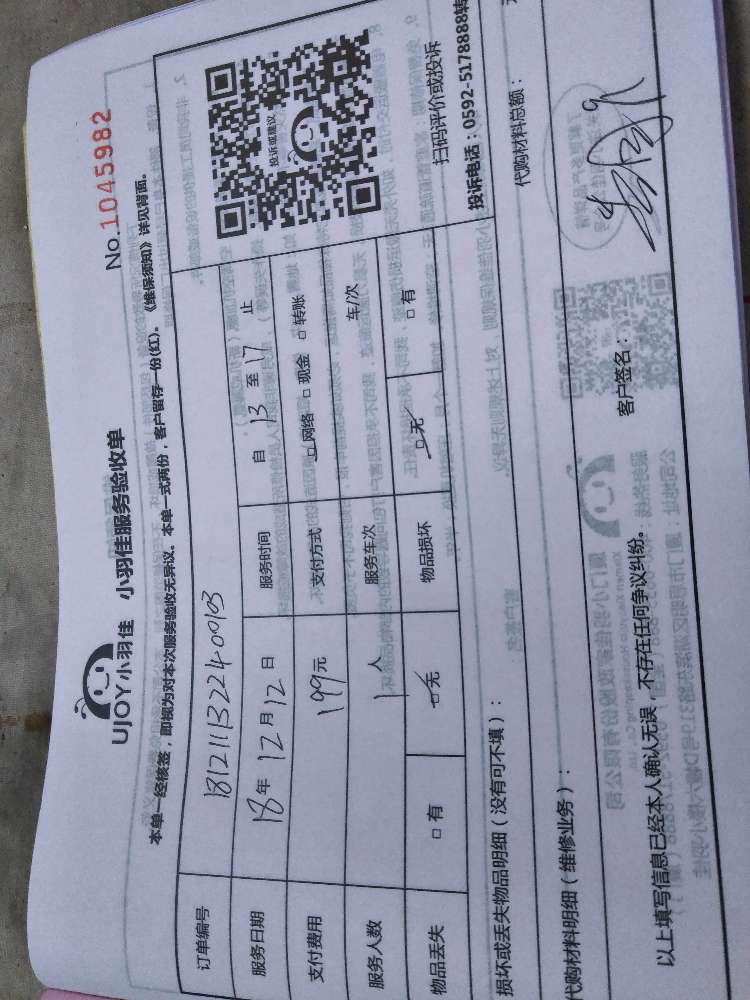 UJOY小羽佳 小羽佳服务验收单
No.1045982
本单一经核签，即视为对本次服务验收无异议。本单一式两份，客户留存一份(红)。《维保须知》详见背面。
订单编号 181211132240003
服务日期 18年12月12日 服务时间 自 13 至 17 止
支付费用 199元 支付方式 □网络 □现金 □转账
服务人数 1人 服务车次 车/次
物品丢失 □有 □无 物品损坏 □无 □有
投诉或建议
扫码评价或投诉
投诉电话：0592-5178888转
损坏或丢失物品明细（没有可不填）：
代购材料明细（维修业务）： 代购材料总额：
以上填写信息已经本人确认无误，不存在任何争议纠纷。 客户签名：